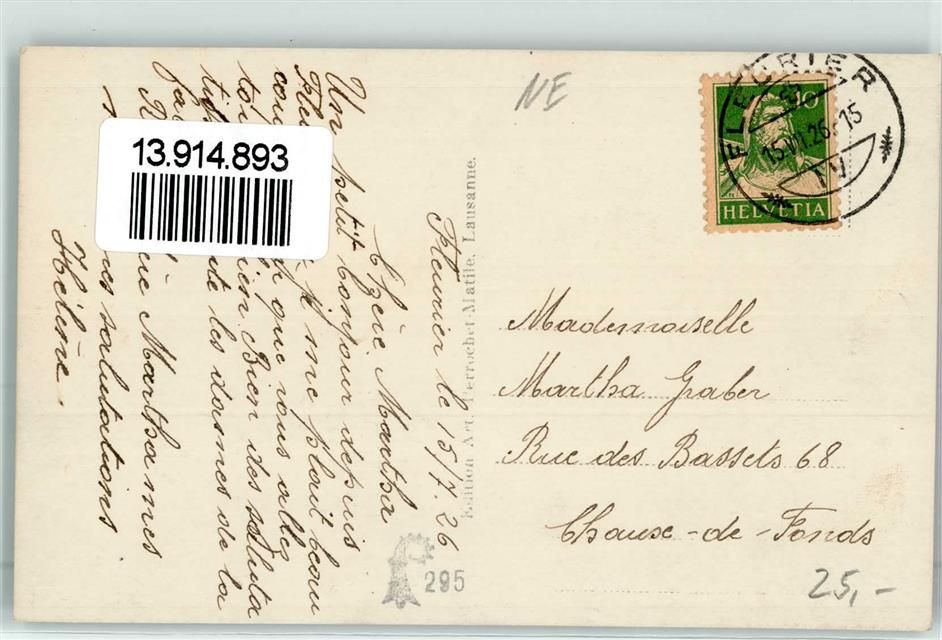 Fleurier le 15/7.26
Chère Martha
Un petit bonjour depuis
Fleurier je me plait beau
coup que vous allez
toi bien Bien des saluta
tions de les dormes de la
Reçoit chère Martha mes
bonnes salutations
Hélène.
13.914.893
Edition Art. Perrochet-Matile, Lausanne.
295
NE
FLEURIER
15.VII.26.-15
IV
10
HELVETIA
Mademoiselle
Martha Graber
Rue des Bassets 68
Chaux-de-Fonds
25,-